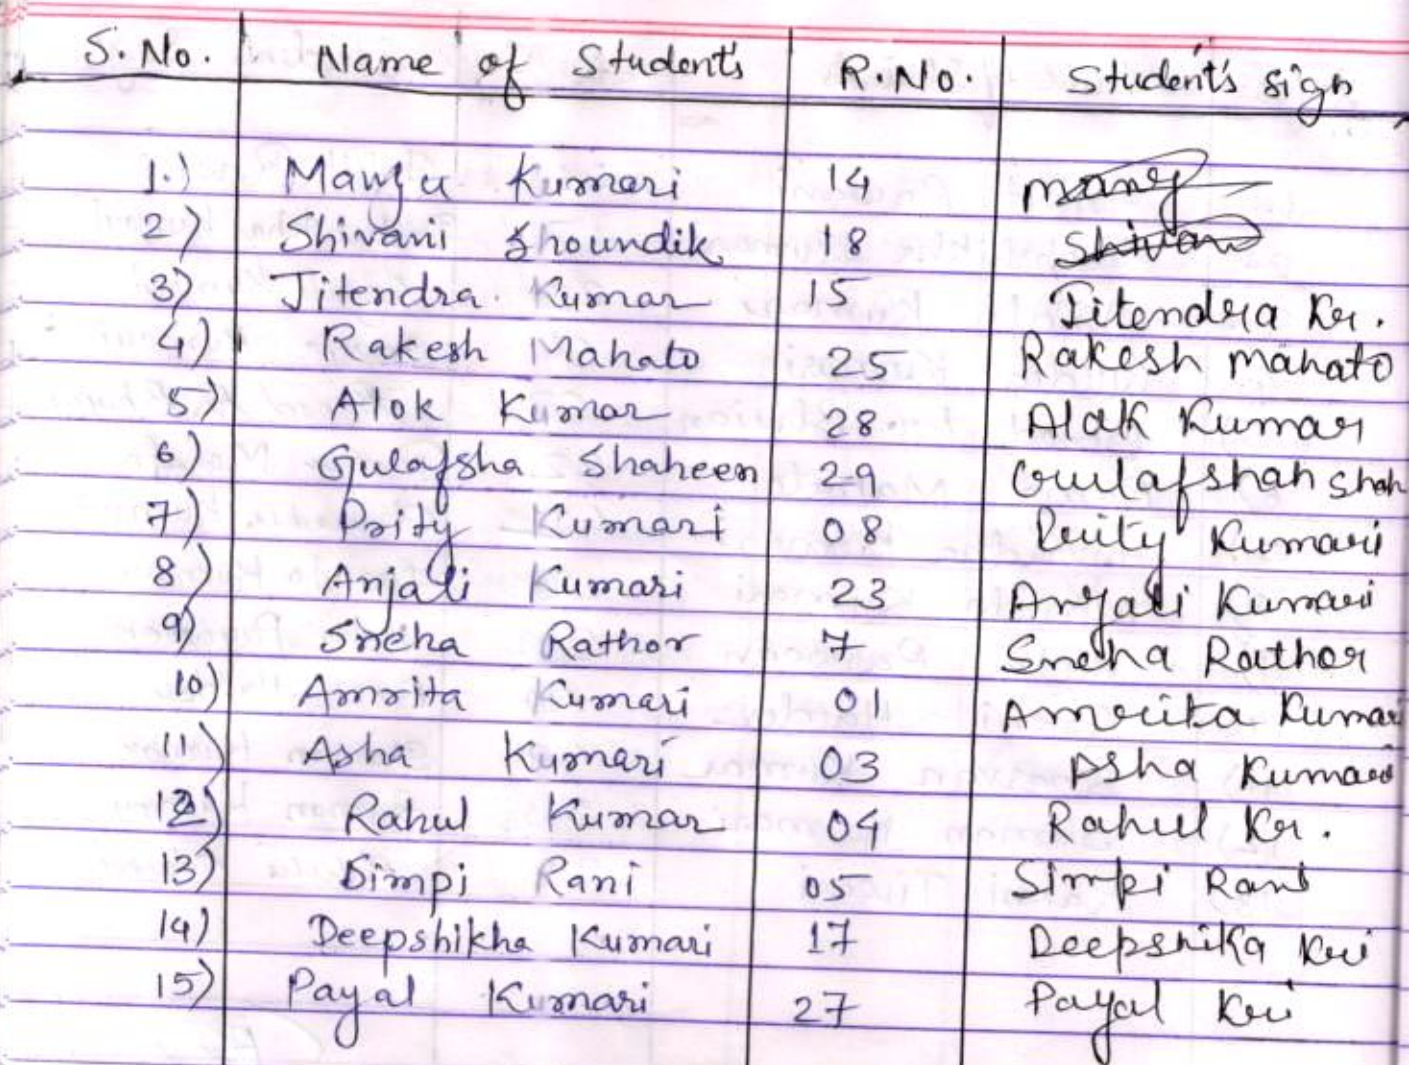 S. No. Name of Student's R. No. Student's sign
1.) Manju Kumari 14 Manj
2) Shivani Shoundik 18 Shivani
3) Jitendra Kumar 15 Jitendra Kr.
4) Rakesh Mahato 25 Rakesh Mahato
5) Alok Kumar 28 Alok Kumar
6) Gulafsha Shaheen 29 Gulafshah Shah
7) Prity Kumari 08 Prity Kumari
8) Anjali Kumari 23 Anjali Kumari
9) Sneha Rathor 7 Sneha Rathor
10) Amrita Kumari 01 Amrita Kumari
11) Asha Kumari 03 Asha Kumari
12) Rahul Kumar 04 Rahul Kr.
13) Simpi Rani 05 Simpi Rani
14) Deepshikha Kumari 17 Deepshika Kri
15) Payal Kumari 27 Payal Kri